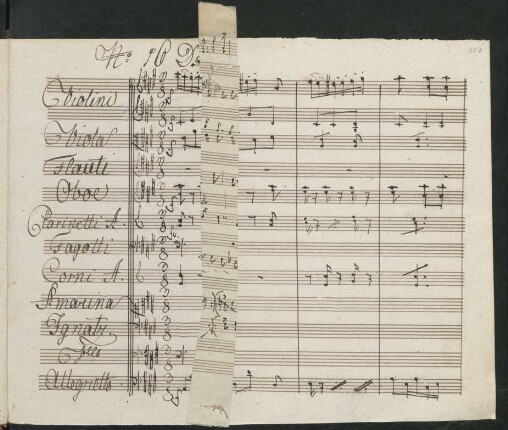 No: 16 D
Violini
Viola
Flauti
Oboe
Clarinetti A.
Fagotti
Corni A.
Amarina
Ignatz.
Allegretto